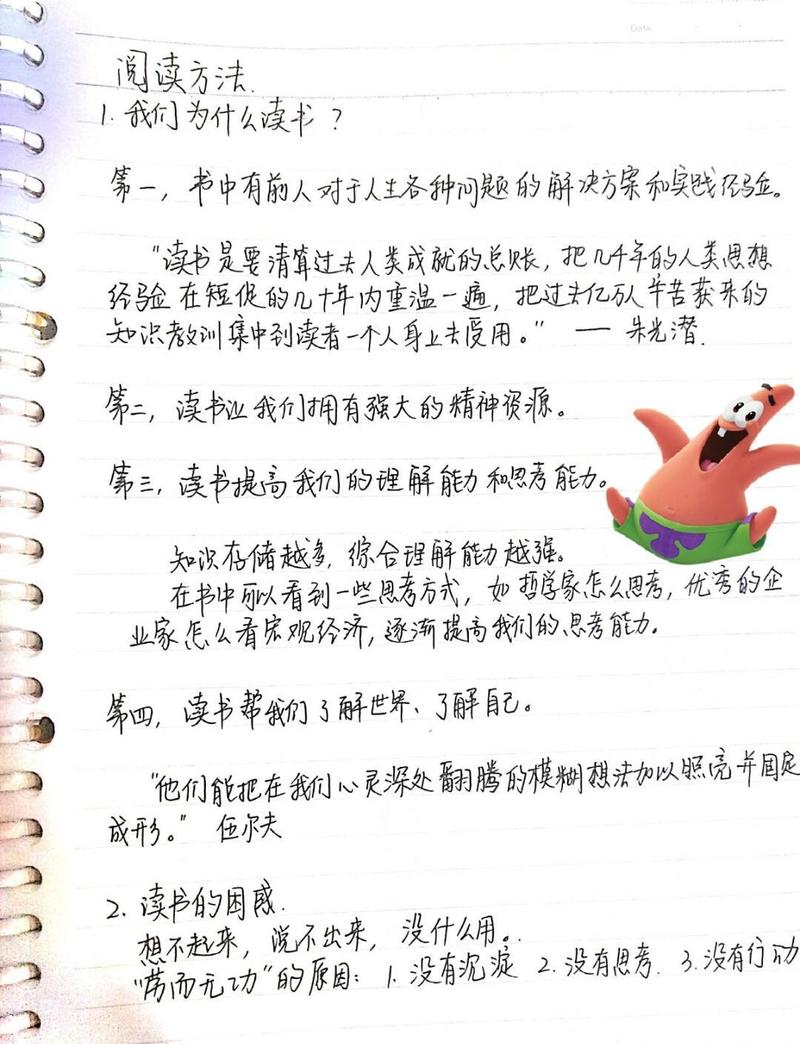 Date
阅读方法.
1. 我们为什么读书？
第一，书中有前人对于人生各种问题的解决方案和实践经验。
“读书是要清算过去人类成就的总账，把几千年的人类思想
经验在短促的几十年内重温一遍，把过去亿万人辛苦获来的
知识教训集中到读者一个人身上去受用。” — 朱光潜.
第二，读书让我们拥有强大的精神资源。
第三，读书提高我们的理解能力和思考能力。
知识存储越多，综合理解能力越强。
在书中可以看到一些思考方式，如哲学家怎么思考，优秀的企
业家怎么看宏观经济，逐渐提高我们的思考能力。
第四，读书帮我们了解世界、了解自己。
“他们能把在我们心灵深处翻腾的模糊想法加以照亮并固定
成形。” 伍尔夫
2. 读书的困惑.
想不起来，说不出来，没什么用。
“劳而无功”的原因：1. 没有沉淀 2. 没有思考. 3. 没有行动